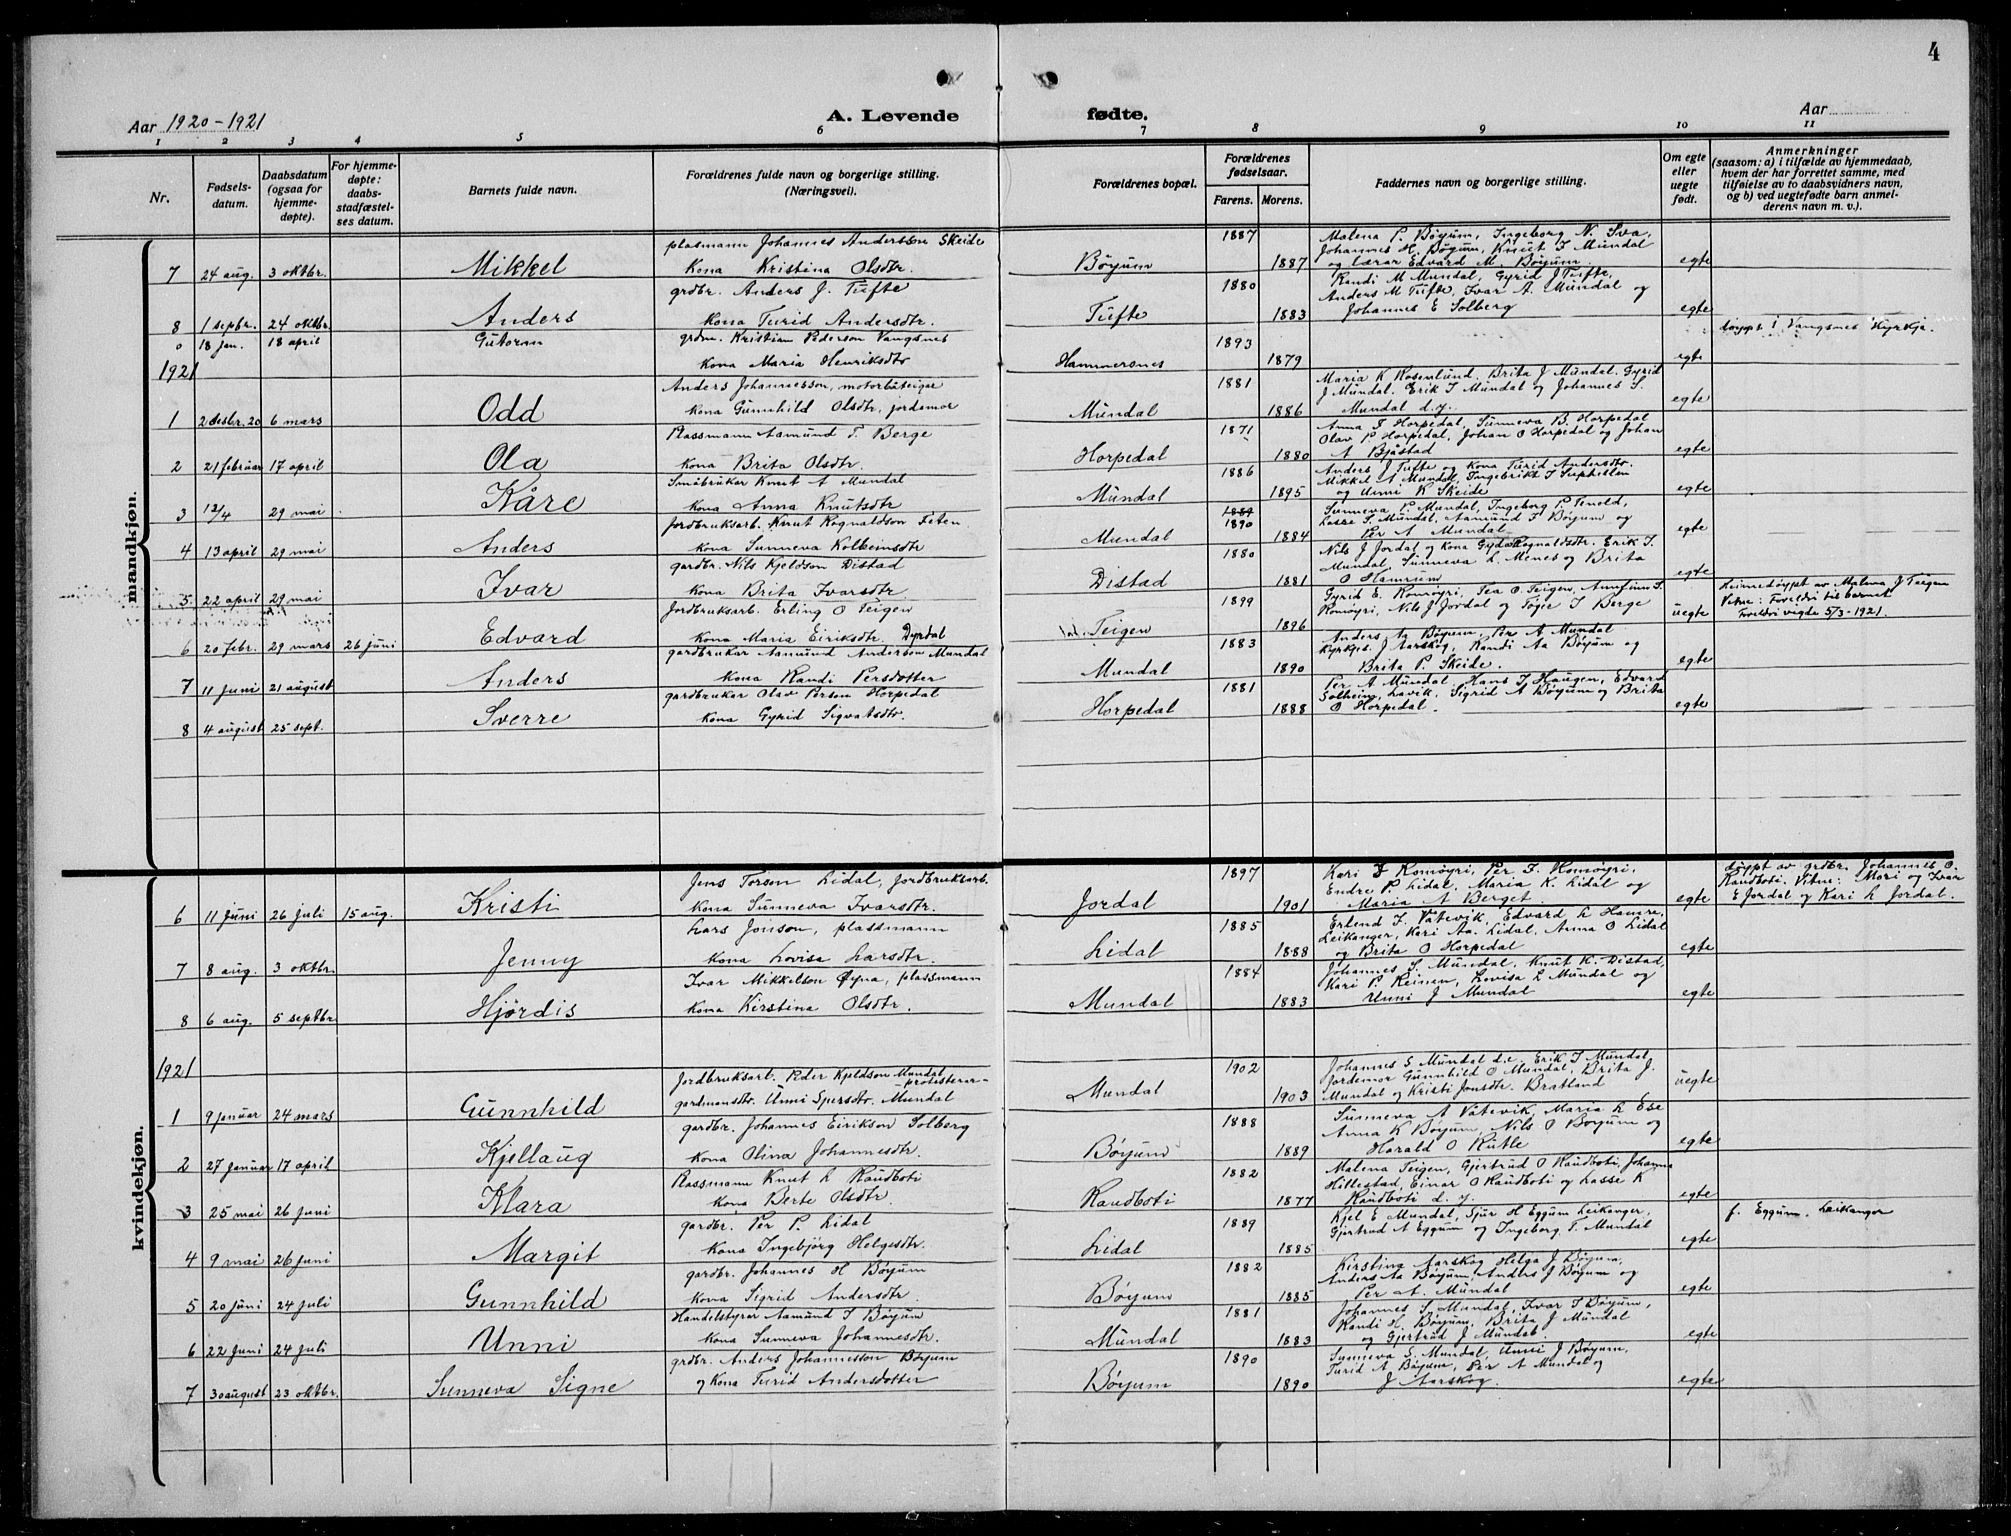 4
Aar 1920-1921
A. Levende
fødte.
Aar
1 2 3 4 5 6 7 8 9 10 11
Nr.
Fødsels-
datum.
Daabsdatum
(ogsaa for
hjemme-
døpte).
For hjemme-
døpte:
daabs-
stadfæstel-
ses datum.
Barnets fulde navn.
Forældrenes fulde navn og borgerlige stilling.
(Næringsvei).
Forældrenes bopæl.
Forældrenes
fødselsaar.
Farens. Morens.
Faddernes navn og borgerlige stilling.
Om egte
eller
uegte
født.
Anmerkninger
(saasom: a) i tilfælde av hjemmedaab,
hvem der har forrettet samme, med
tilføielse av to daabsvidners navn,
og b) ved uegtefødte barn anmel-
derens navn m. v.).
mandkjøn.
plasmann Johannes Anderssen Skeide 1887 Malena P. Bøyum, Ingeborg N. Sva,
Johannes H Bøyum, Knut I Mundal
7 24 aug. 3 oktbr. Mikkel Kona Kristina Olsdtr. Bøyum 1887 og lærar Edvard M. Bøyum. egte
grdbr. Anders J. Tufte 1880 Randi M Mundal, Gyrid J Tufte,
Anders M Tufte, Ivar A. Mundal og
8 1 septbr. 24 oktbr. Anders Kona Turid Andersdtr. Tufte 1883 Johannes E Solberg egte
0 18 jan. 18 april Gutorm grdm. Kristian Pederson Vangsnes 1893 døypt i Vangsnes Kyrkja.
1921 Kona Maria Henriksdtr Hammersnes 1879 egte
Anders Johannesson, motorbåteigar 1881 Maria K Rosenlund. Brita J Mundal. Gyrid
J Mundal. Erik I Mundal og Johannes S.
1 2 desbr. 20 6 mars Odd Kona Gunnhild Olsdtr, jordemor Mundal 1886 Mundal d.y. egte
Plassmann Aamund T. Berge 1871 Anna I Horpedal, Sunneva B. Horpedal
Olav P Horpedal, Johan O Horpedal og Johan
2 21 februar 17 april Ola Kona Brita Olsdtr. Horpedal 1880 A Bjåstad egte
Småbrukar Knut A Mundal 1886 Anders J Tufte og Kona Turid Andersdtr.
Mikkel A Mundal, Ingebrikt I Suphellen
3 12/4 29 mai Kåre Kona Anna Knutsdtr Mundal 1895 og Unni K Skeide egte
Jordbruksarb. Knut Rognaldson Feten 1889 1890 Sunneva P Mundal, Ingeborg P Tenold,
Lasse S. Mundal, Aamund I Bøyum og
4 13 april 29 mai Anders Kona Sunneva Kolbeinsdtr Mundal 1884 Per A Mundal egte
gardbr. Nils Kjeldson Distad 1880 Nils J Jordal og Kona Gyda Rognaldsdtr. Erik I.
Mundal, Sunneva L. Menes og Brita
5 22 april 29 mai Ivar Kona Brita Ivarsdtr Distad 1881 O Hamrum egte
Jordbruksarb. Erling O Teigen 1899 Gyrid E. Romøyri, Tea O. Teigen, Arnfinn S.
Romøyri, Nils J Jordal og Tøger I Berge
6 20 febr. 29 mars 26 juni Edvard Kona Maria Eiriksdtr. Dyrdal Teigen 1896 uegte
Heimedøypt av Malena J Teigen
Vitne: Foreldri til barnet
Foreldri vigde 5/3-1921.
gardbrukar Aamund Anderson Mundal 1883 Anders Aa Bøyum, Per A Mundal
Kyrkjes. J Aarskog, Randi Aa Bøyum og
7 11 juni 21 august Anders Kona Randi Persdotter Mundal 1890 Brita P. Skeide. egte
gardbrukar Olav Person Horpedal 1881 Per A Mundal. Hans I Haugen, Edvard
Solheim, Lavik, Sigrid A Bøyum og Brita
8 4 august 25 sept. Sverre Kona Gyrid Sigvatsdtr. Horpedal 1888 O Horpedal. egte
kvindekjøn.
Jens Torson Lidal, jordbruksarb. 1897 Kari I Romøyri, Per I. Romøyri,
Endre P. Lidal, Maria K. Lidal og
6 11 juni 26 juli 15 aug. Kristi Kona Sunneva Ivarsdtr. Jordal 1901 Maria A Berget. egte
døypt av grdbr. Johannes O.
Raudboti. Vitne: Mori og Ivar
E Jordal og Kari L Jordal.
Lars Jonson, plassmann 1885 Erlend I. Vatevik, Edvard L Hamre,
Leikanger, Kari Aa. Lidal, Anna O Lidal
7 8 aug. 3 oktbr. Jenny Kona Lovisa Larsdtr. Lidal 1888 og Brita O Horpedal egte
Ivar Mikkelson Øyna, plassmann 1884 Johannes S. Mundal, Knut K. Distad,
Kari P Reinen, Lovisa L Mundal og
8 6 aug. 5 septbr Hjørdis Kona Kirstina Olsdtr. Mundal 1883 Unni J Mundal egte
1921
Jordbruksarb. Peder Kjeldson Mundal 1902 Johannes S Mundal d.e. Erik I Mundal,
-protesterar-
Jordemor Gunnhild O Mundal, Brita J.
1 9 januar 24 mars Gunnhild gardmansdtr. Unni Spersdtr. Mundal Mundal 1903 Mundal og Kristi Jonsdtr. Bratland uegte
gardbr. Johannes Eirikson Solberg 1888 Sunneva A Vatevik, Maria L Ese
Anna K Bøyum, Nils O Bøyum og
2 27 januar 17 april Kjellaug Kona Olina Johannesdtr. Bøyum 1889 Harald O Rutle egte
Plassmann Knut L Raudboti 1882 Malena Teigen, Gjertrud O Raudboti, Johanna
Hillestad, Einar O Raudboti og Lasse K
3 25 mai 26 juni Klara Kona Berte Olsdtr. Raudboti 1877 Raudboti d. y. egte
gardbr. Per P. Lidal 1889 Kjel E Mundal, Sjur H Eggum Leikanger,
Gjertrud A Eggum og Ingeborg T. Mundal
4 9 mai 26 juni Margit Kona Ingebjørg Helgesdtr. Lidal 1885 egte
f. Eggum, Leikanger
gardbr. Johannes H Bøyum 1882 Kirstina Aarskog Helga J Bøyum,
Anders Aa Bøyum, Anders J Bøyum og
5 20 juni 24 juli Gunnhild Kona Sigrid Andersdtr. Bøyum 1885 Per A. Mundal egte
Handelstyrar Aamund I Bøyum 1881 Johannes S Mundal, Ivar I Bøyum,
Randi H. Bøyum, Brita J Mundal
6 22 juni 24 juli Unni Kona Sunneva Johannesdtr. Mundal 1883 og Gjertrud J Mundal. egte
grdbr. Anders Johannesson Bøyum 1890 Sunneva S. Mundal, Unni J Bøyum,
Turid A Bøyum, Per A Mundal og
7 30 august 23 oktbr. Sunneva Signe og Kona Turid Andersdotter Bøyum 1890 J Aarskog. egte